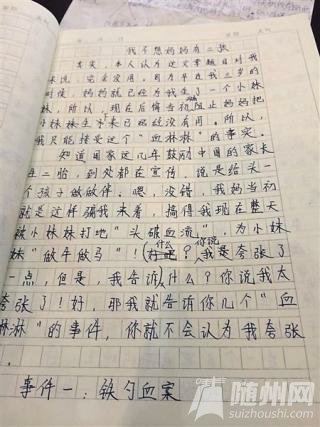 我不想妈妈有二孩
其实，本人认为这文章题目对我
来说，完全没用。因为早在我三岁的
时候，妈妈就已经为我生了一个小林
林，所以，现在后悔当初阻止妈妈把
小林林生下来已经没有用。所以，
我只能接受这个“血淋淋”的事实。
知道国家这几年鼓励中国的家长
生二胎，到处都在宣传，说是给头一
个孩子做伴。嗯，没错，我妈当初
就是这样骗我来着，搞得我现在整天
被小林林打地“头破血流”，为小林
林“做牛做马”！（什么？你说我是夸张了
一点，但是，我告诉什么？你说我太
夸张了！好，那我就告诉你几个“血
淋淋”的事件，你就不会认为我夸张
事件一：铁勺血案
随州网
suizhoushi.com